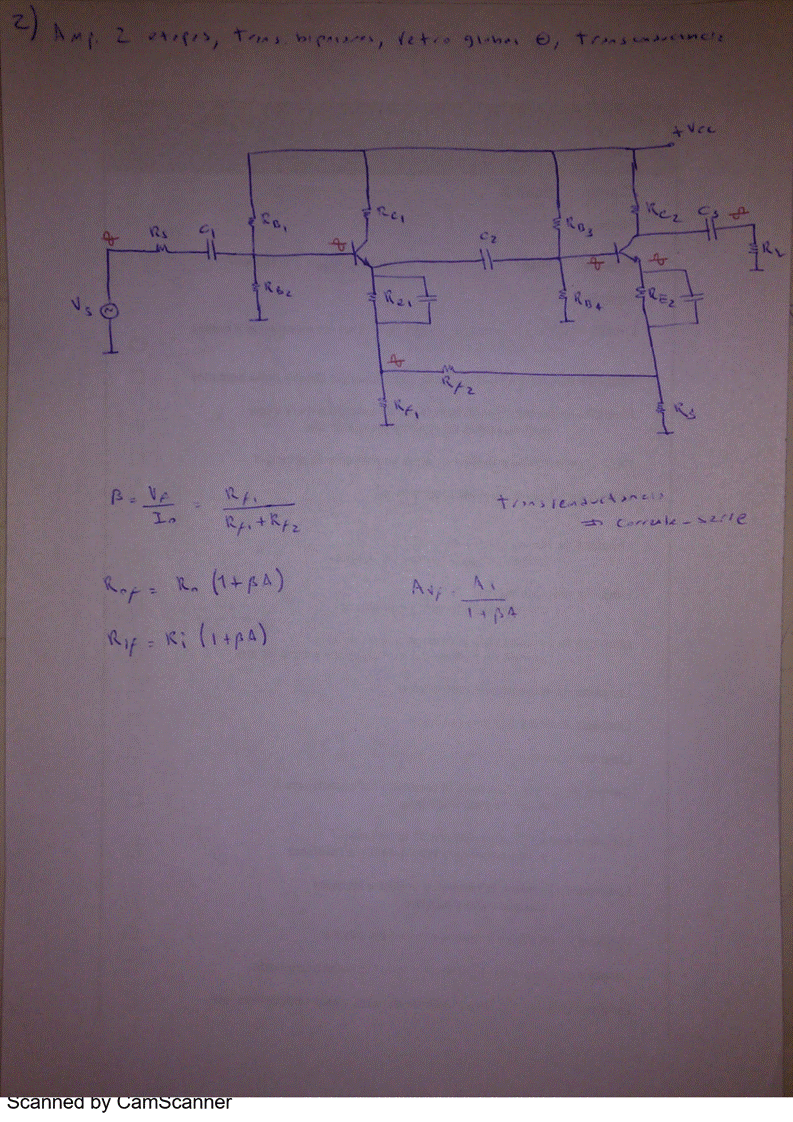 2) Amp. 2 etapas, trans. bipolares, retro global ⊖, transconductancia
+Vcc
Rs C1 RB1 RC1 C2 RB3 RC2 C3
RL
RB2 RE1 RB4 RE2
Vs
Rf2
Rf1 R3
β = Vf / Io = Rf1 / (Rf1 + Rf2)
transconductancia
⇒ corriente-serie
Rof = Ro (1+βA)
Rif = Ri (1+βA)
1+βA
Scanned by CamScanner